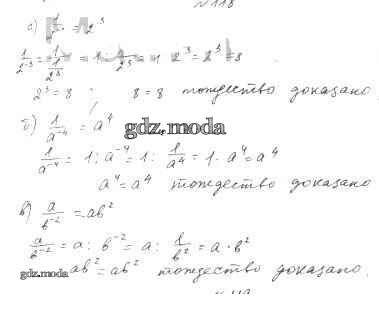 N 118
а) 1/2⁻³ = 2³
1/2⁻³ = 1/(1/2³) = 1 : 1/2³ = 1 · 2³ = 2³ = 8
2³ = 8 8 = 8 тождество доказано
б) 1/a⁻⁴ = a⁴
gdz.moda
1/a⁻⁴ = 1 : a⁻⁴ = 1 : 1/a⁴ = 1 · a⁴ = a⁴
a⁴ = a⁴ тождество доказано
в) a/b⁻² = ab²
a/b⁻² = a : b⁻² = a : 1/b² = a · b²
gdz.moda ab² = ab² тождество доказано.